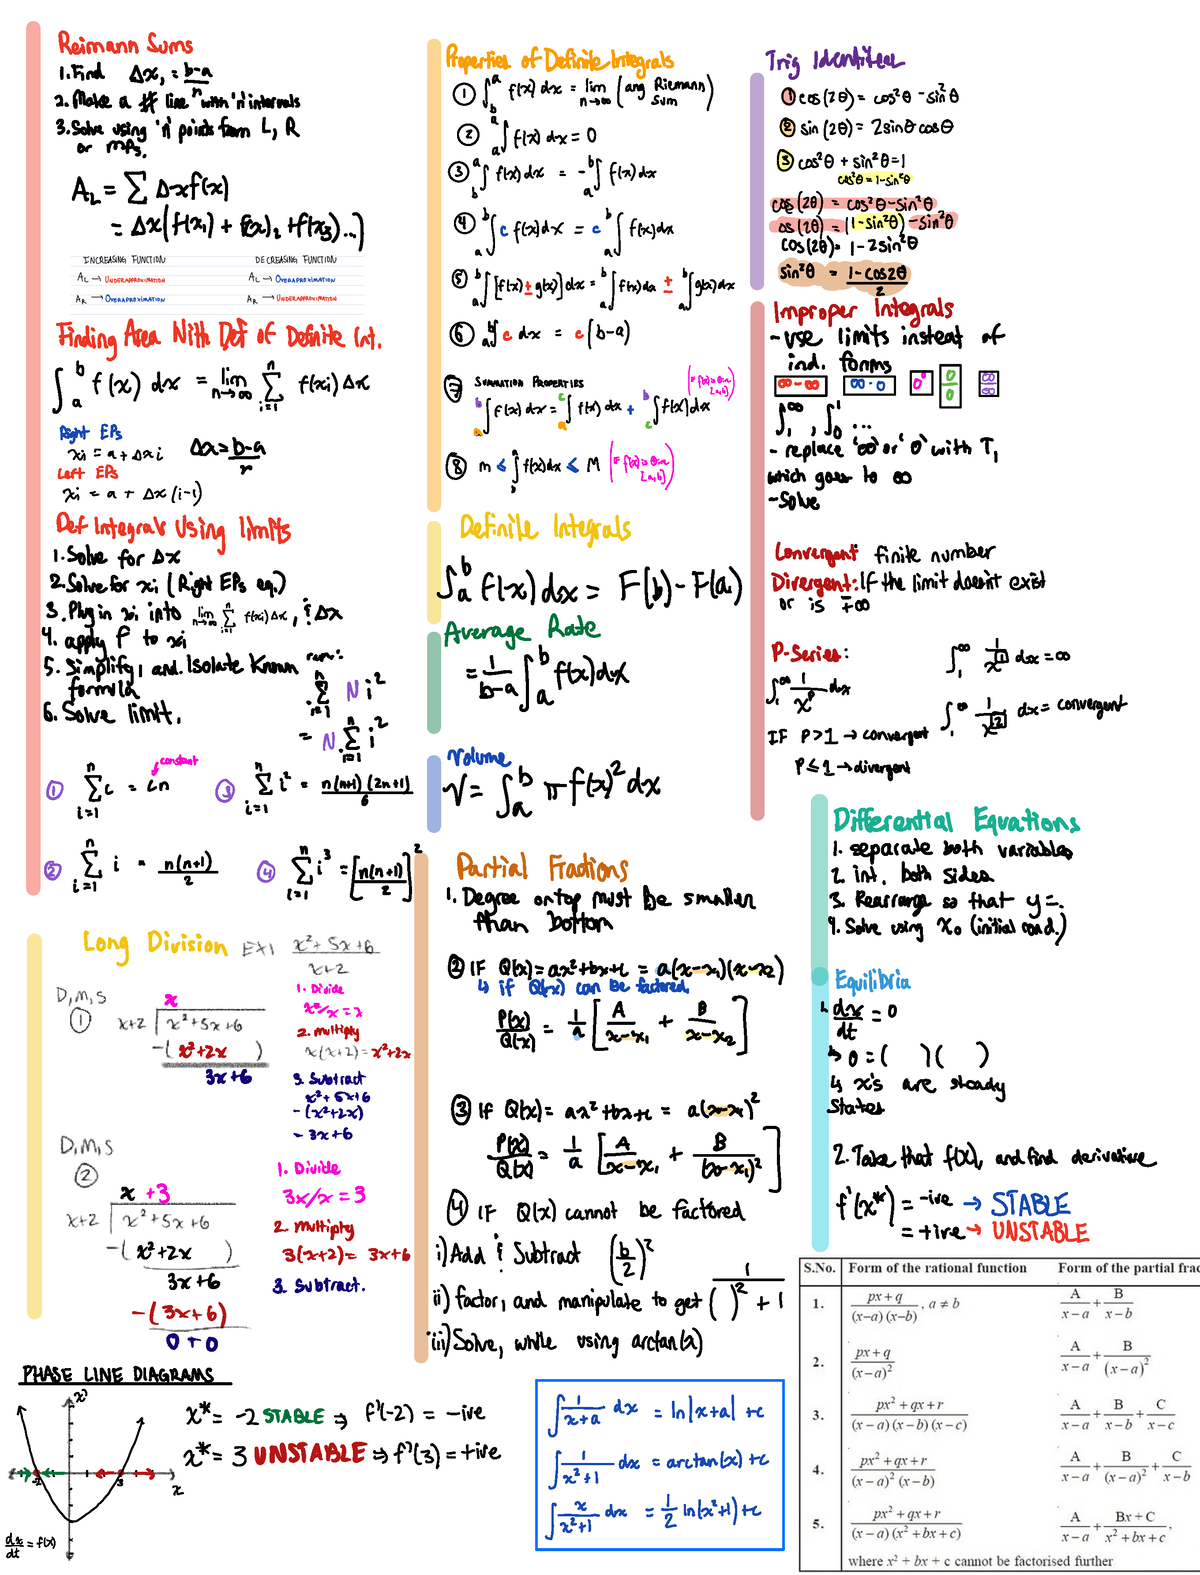 Reimann Sums
1. Find Δx, = b-a / n
2. Make a # line with 'n' intervals
3. Solve using 'n' points from L, R
or mps.
A_L = ∑ Δxf(x)
= Δx(f(x₁) + f(x)₂ + f(x₃)...)
INCREASING FUNCTION DECREASING FUNCTION
A_L → UNDERAPPROXIMATION A_L → OVERAPROXIMATION
A_R → OVERAPROXIMATION A_R → UNDERAPPROXIMATION
Finding Area With Def of Definite Int.
∫_a^b f(x) dx = lim n→∞ ∑_{i=1}^n f(xi) Δx
Right EPs
xi = a + Δx i Δx = b-a / n
Left EPs
xi = a + Δx (i-1)
Def Integrals Using limits
1. Solve for Δx
2. Solve for xi (Right EPs eq.)
3. Plug in xi into lim n→∞ ∑_{i=1}^n f(xi) Δx, & Δx
4. apply f to xi
5. Simplify, and Isolate Known
formula
6. Solve limit.
∑_{i=1}^n N i²
= N ∑_{i=1}^n i²
constant
① ∑_{i=1}^n c = cn
③ ∑_{i=1}^n i² = n(n+1)(2n+1) / 6
② ∑_{i=1}^n i = n(n+1) / 2
④ ∑_{i=1}^n i³ = [n(n+1) / 2]²
Long Division EX1 x²+5x+6 / x+2
D, M, S
①
x
x+2 | x²+5x+6
-( x²+2x )
3x+6
1. Divide
x²/x = x
2. multiply
x(x+2) = x²+2x
3. Subtract
x²+5x+6
-(x²+2x)
- 3x+6
D, M, S
②
x +3
x+2 | x²+5x+6
-( x²+2x )
3x+6
-(3x+6)
0+0
1. Divide
3x/x = 3
2. multiply
3(x+2) = 3x+6
3. Subtract.
PHASE LINE DIAGRAMS
x' x
-2 3
dx/dt = f(x)
x* = -2 STABLE ⇒ f'(-2) = -ive
x* = 3 UNSTABLE ⇒ f'(3) = +ive
Properties of Definite Integrals
① ∫_b^a f(x) dx = lim n→∞ (any Riemann Sum)
② ∫_a^a f(x) dx = 0
③ ∫_b^a f(x) dx = -∫_a^b f(x) dx
④ ∫_a^b c f(x) dx = c ∫_a^b f(x) dx
⑤ ∫_a^b [f(x) ± g(x)] dx = ∫_a^b f(x) dx ± ∫_a^b g(x) dx
⑥ ∫_a^b c dx = c(b-a)
⑦ SUMMATION PROPERTIES
∫_a^b f(x) dx = ∫_a^c f(x) dx + ∫_c^b f(x) dx
⑧ m ≤ ∫ f(x) dx ≤ M
Definite Integrals
∫_a^b f(x) dx = F(b) - F(a)
Average Rate
= 1/b-a ∫_a^b f(x) dx
Volume
V = ∫_a^b π f(x)² dx
Partial Fractions
1. Degree on top must be smaller
than bottom
② IF Q(x) = ax²+bx+c = a(x-x₁)(x-x₂)
↳ if Q(x) can be factored,
P(x)/Q(x) = 1/a [A/x-x₁ + B/x-x₂]
③ If Q(x) = ax²+bx+c = a(x-x₁)²
P(x)/Q(x) = 1/a [A/x-x₁ + B/(x-x₁)²]
④ IF Q(x) cannot be factored
i) Add & Subtract (b/2)²
ii) factor, and manipulate to get 1 / ( )² + 1
iii) Solve, while using arctan(x)
∫ 1/x+a dx = ln|x+a| + c
∫ 1/x²+1 dx = arctan(x) + c
∫ x/x²+1 dx = 1/2 ln(x²+1) + c
Trig Identities
① cos(2θ) = cos²θ - sin²θ
② sin(2θ) = 2sinθ cosθ
③ cos²θ + sin²θ = 1
cos²θ = 1-sin²θ
cos(2θ) = cos²θ - sin²θ
cos(2θ) = (1-sin²θ) - sin²θ
cos(2θ) = 1-2sin²θ
sin²θ = 1-cos2θ / 2
Improper Integrals
- use limits instead of
ind. forms
∞-∞ ∞·0 0⁰ 0/0 ∞/∞
∫_1^∞, ∫_0^1 ...
- replace '∞' or '0' with T,
which goes to ∞
- Solve
Convergent: finite number
Divergent: If the limit doesn't exist
or is ∓∞
P-Series:
∫_1^∞ 1/x^p dx
IF P>1 → convergent
P≤1 → divergent
∫_1^∞ 1/x^1 dx = ∞
∫_1^∞ 1/x^2 dx = convergent
Differential Equations
1. separate both variables
2. int. both sides
3. Rearrange so that y=.
4. Solve using x₀ (initial cond.)
Equilibria
1. dx/dt = 0
↳ 0 = ( )( )
↳ x's are steady
states
2. Take that f(x), and find derivative
f'(x*) = -ive → STABLE
= +ive → UNSTABLE
S.No. Form of the rational function Form of the partial frac
1. px+q / (x–a)(x–b), a ≠ b A/x–a + B/x–b
2. px+q / (x–a)² A/x–a + B/(x–a)²
3. px²+qx+r / (x–a)(x–b)(x–c) A/x–a + B/x–b + C/x–c
4. px²+qx+r / (x–a)²(x–b) A/x–a + B/(x–a)² + C/x–b
5. px²+qx+r / (x–a)(x²+bx+c) A/x–a + Bx+C/x²+bx+c,
where x² + bx + c cannot be factorised further